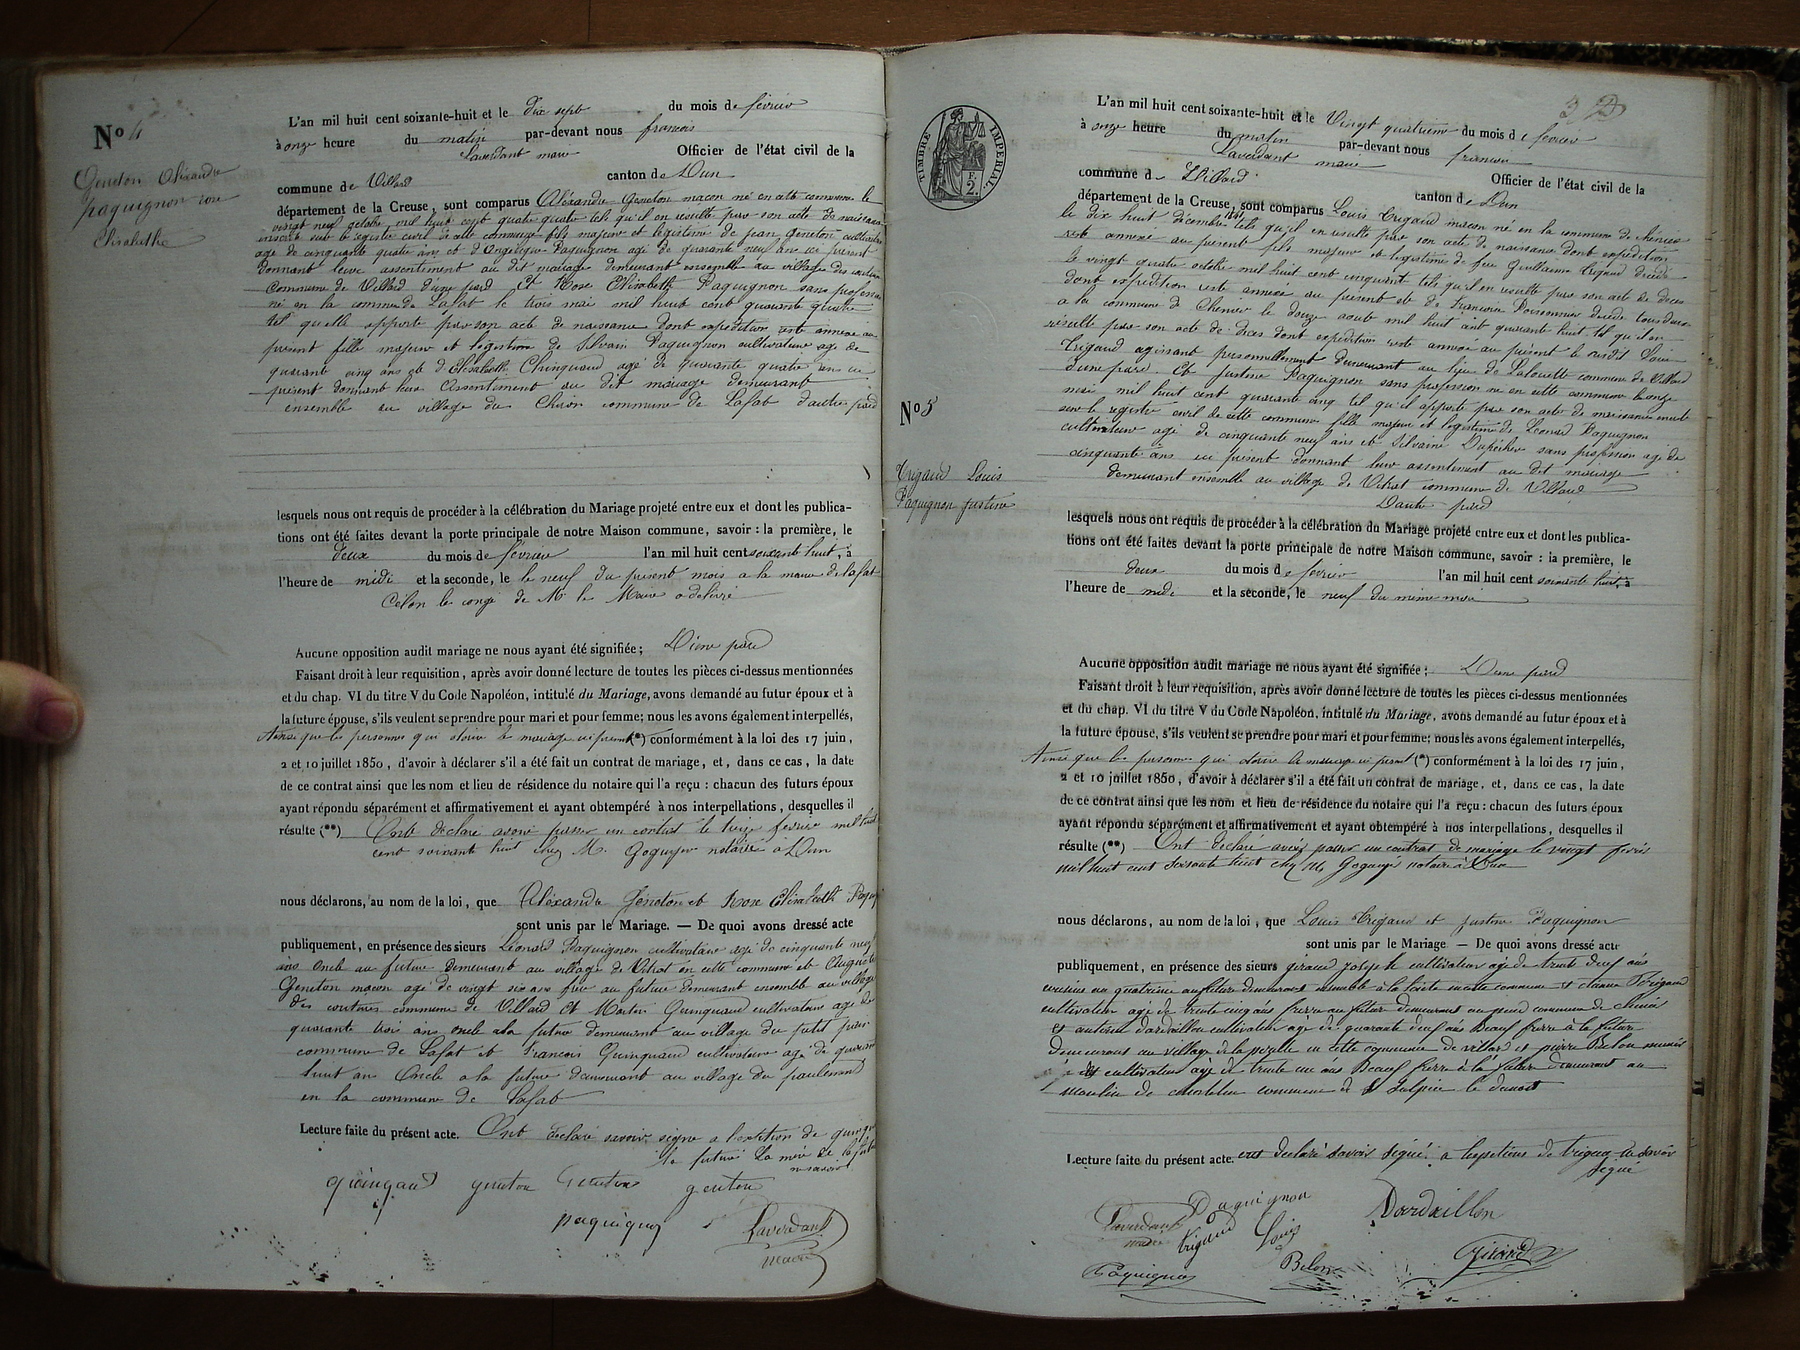 No 4
Geneton Alexandre
paquignon rose
Elisabethe
L'an mil huit cent soixante-huit et le dix sept du mois de février
à onze heure du matin par-devant nous francois
Laverdant maire Officier de l'état civil de la
commune de Villard canton de Dun
département de la Creuse, sont comparus Aléxandre Geneton macon né en cette commune le
vingt neuf octobre mil huit cent quarante quatre tels qu'il en résulte par son acte de naissance
inscrit sur le registre civil de cette commune fils majeur et légitime de jean Geneton cultivateur
age de cinquante quatre ans et d'Angelique Paquignon agé de quarante neuf ans ici présent
donnant leur assentiment au dit mariage demeurant ensemble au village des coutures
commune de Villard d'une pard Et Rose Elisabeth Paquignon sans profession
né en la commune de Lafat le trois mai mil huit cent quarante quatre
tel quelle apporte par son acte de naissance dont expedition reste annexé au
présent fille majeur et legitime de Silvain Paquignon cultivateur age de
quarante cinq ans et d'Elisabeth Chinquaud agé de quarante quatre ans ici
present donnant leur Assentiment au dit mariage demeurant
ensemble au village du Chiron commune de Lafat d'autre pard
lesquels nous ont requis de procéder à la célébration du Mariage projeté entre eux et dont les publica-
tions ont été faites devant la porte principale de notre Maison commune, savoir : la première, le
deux du mois de février l'an mil huit cent soixante huit, à
l'heure de midi et la seconde, le le neuf du present mois a la mairie de Lafat
Célon le congé de Mr le Maire a delivré
Aucune opposition audit mariage ne nous ayant été signifiée; D'une pard
Faisant droit à leur requisition, après avoir donné lecture de toutes les pièces ci-dessus mentionnées
et du chap. VI du titre V du Code Napoléon, intitulé du Mariage, avons demandé au futur époux et à
la future épouse, s'ils veulent se prendre pour mari et pour femme; nous les avons également interpellés,
Ainsi que les personnes qui otorise le mariage ici present (*) conformément à la loi des 17 juin,
2 et 10 juillet 1850, d'avoir à déclarer s'il a été fait un contrat de mariage, et, dans ce cas, la date
de ce contrat ainsi que les nom et lieu de résidence du notaire qui l'a reçu : chacun des futurs époux
ayant répondu séparément et affirmativement et ayant obtempéré à nos interpellations, desquelles il
résulte (**) Ont declaré avoir passer un contrat le treize fevrier mil huit
cent soixante huit chez M. Goguyer notaire a Dun
nous déclarons, au nom de la loi, que Aléxandre Géneton et Rose Elisabeth Paqui
sont unis par le Mariage. — De quoi avons dressé acte
publiquement, en présence des sieurs Léonard Paquignon cultivateur agé de cinquante neuf
ans Oncle au future demeurant au village de Vitrat en cette commune et
Geneton macon agé de vingt six ans frere au future demeurant ensemble au village
des coutures commune de Villard Et Martin Guinquaud cultivateur age de
quarante trois ans oncle ala future demeurant au village du petit
commune de Lafat et Francois Guinquaud cultivateur agé de quarante
huit an Oncle a la future demeurant au village du
en la commune de Lafat
Lecture faite du présent acte. Ont declaré savoir signe a
la future La mère de la future
guingaud geneton Geneton geneton
paquignon Laverdant
maire
3
L'an mil huit cent soixante-huit et le Vingt quatrieme du mois de fevrier
à onze heure du matin par-devant nous francois
Laverdant maire Officier de l'état civil de la
commune de Villard canton de Dun
département de la Creuse, sont comparus Louis Trigaud macon né en la commune de chénier
le dix huit décembre 1841 tels qu'il en résulte par son acte de naissance dont expedition
reste annexé au present fils majeur et legitime de feu Guillaume Trigaud décédé
le vingt quatre octobre mil huit cent cinquant tels qu'il en resulte par son acte de deces
dont expedition reste annexé au present et de Francoise Poissonnier decedé tous deux
a la commune de Chenier le douze aout mil huit cent quarante huit tel qu'il en
résulte par son acte de deces dont expedition reste annexé au présent le susdit Louis
Trigaud agissant personnellement demeurant au lieu de Lalouette commune de Villard
d'une pard. Et Justine Paquignon sans profession né en cette commune le onze
mai mil huit cent quarante cinq tel qu'il apporte par son acte de naissance inscrit
sur le registre civil de cette commune fille majeur et legitime de Léonard Paquignon
cultivateur agé de cinquante neuf ans et Silvaine Dupeiher sans profession agé de
cinquante ans ici présent donnant leur assentiment au dit mariage
demeurant ensemble au village de Vitrat commune de Villard
Dautre pard
No 5
Trigaud Louis
Paquignon justine
lesquels nous ont requis de procéder à la célébration du Mariage projeté entre eux et dont les publica-
tions ont été faites devant la porte principale de notre Maison commune, savoir : la première, le
deux du mois de fevrier l'an mil huit cent soixante huit, à
l'heure de midi et la seconde, le neuf du même mois
Aucune opposition audit mariage ne nous ayant été signifiée; Dune pard
Faisant droit à leur requisition, après avoir donné lecture de toutes les pièces ci-dessus mentionnées
et du chap. VI du titre V du Code Napoléon, intitulé du Mariage, avons demandé au futur époux et à
la future épouse, s'ils veulent se prendre pour mari et pour femme; nous les avons également interpellés,
Ainsi que les personnes qui otorise le mariage ici present (*) conformément à la loi des 17 juin,
2 et 10 juillet 1850, d'avoir à déclarer s'il a été fait un contrat de mariage, et, dans ce cas, la date
de ce contrat ainsi que les nom et lieu de résidence du notaire qui l'a reçu : chacun des futurs époux
ayant répondu séparément et affirmativement et ayant obtempéré à nos interpellations, desquelles il
résulte (**) Ont declaré avoir passer un contrat de mariage le vingt fevrier
mil huit cent soixante huit chez Mr Goguyé notaire à Dun
nous déclarons, au nom de la loi, que Louis Trigaud et Justine Paquignon
sont unis par le Mariage — De quoi avons dressé acte
publiquement, en présence des sieurs giraud Joseph cultivateur agé de trente deuf ans
cousins au quatrieme au futur demeurant ensemble à la en cette commune et Trigaud
cultivateur age de trente cinq ans frere au futur demeurant au commune de chénier
et antoine dardaillon cultivateur age de quarante deuf ans Beauf frere à la future
demeurant au village de la pezelle en cette commune de villard et pierre Belon
cultivateur age de trente un ans Beauf frere à la future demeurant au
moulin de commune de St Sulpice le dunois
Lecture faite du présent acte. ont declaré savoir signé a de
signé
Laverdant Paquignon Dardaillon
maire trigaud Louis
Paquignon Belon Giraud
TIMBRE IMPÉRIAL
F.
2.